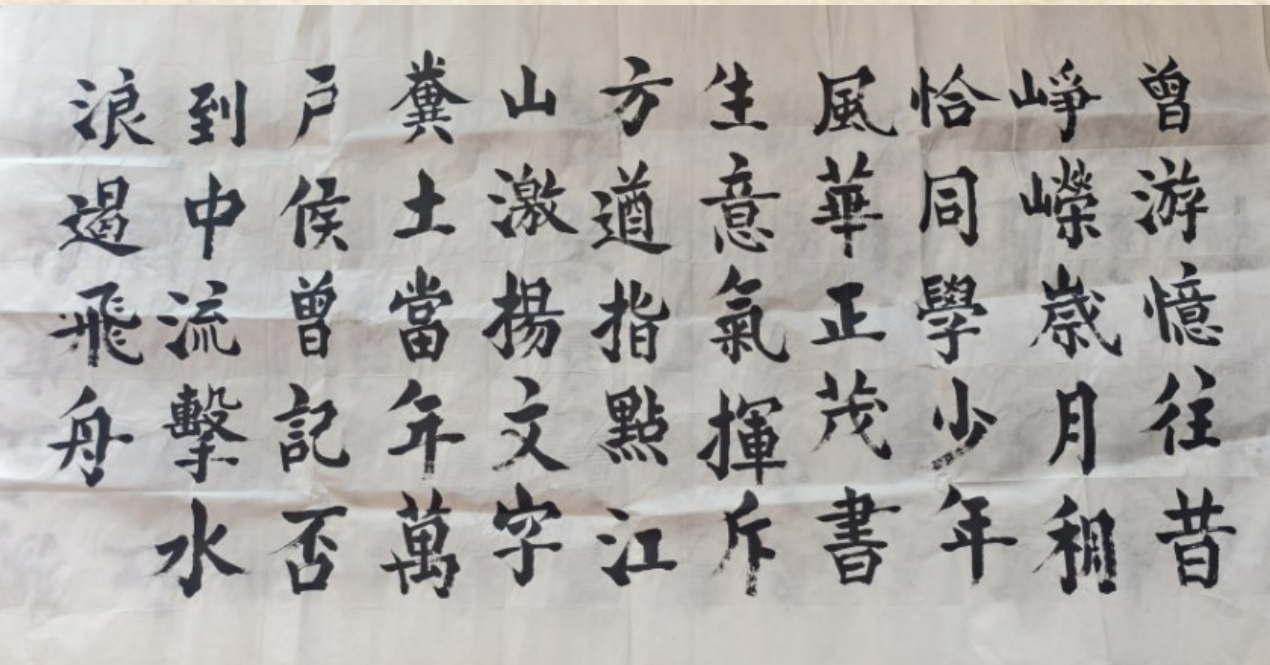 曾游憶往昔
崢嶸歲月稠
恰同學少年
風華正茂書
生意氣揮斥
方遒指點江
山激揚文字
糞土當年萬
戶侯曾記否
到中流擊水
浪遏飛舟